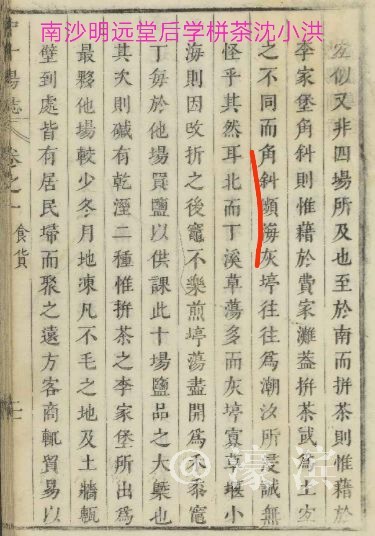 南沙明远堂后学栟茶沈小洪
似又非四場所及也至於南而拼茶則惟藉於
李家堡角斜則惟藉於費家灘葢拼茶
之不同而角斜瀕海灰埻往往爲潮汐所浸誠無
怪乎其然耳北而丁溪草蕩多而灰埻寡草堰小
海則因改折之後竈不樂煎埻蕩盡開爲禾黍竈
丁每於他場買鹽以供課此十場鹽品之大槩也
其次則鹻有乾溼二種惟拼茶之李家堡所出爲
最夥他場較少冬月地凍凡不毛之地及土牆甎
壁到處皆有居民埽而聚之遠方客商輒貿易以
十場志 卷之一 食貨